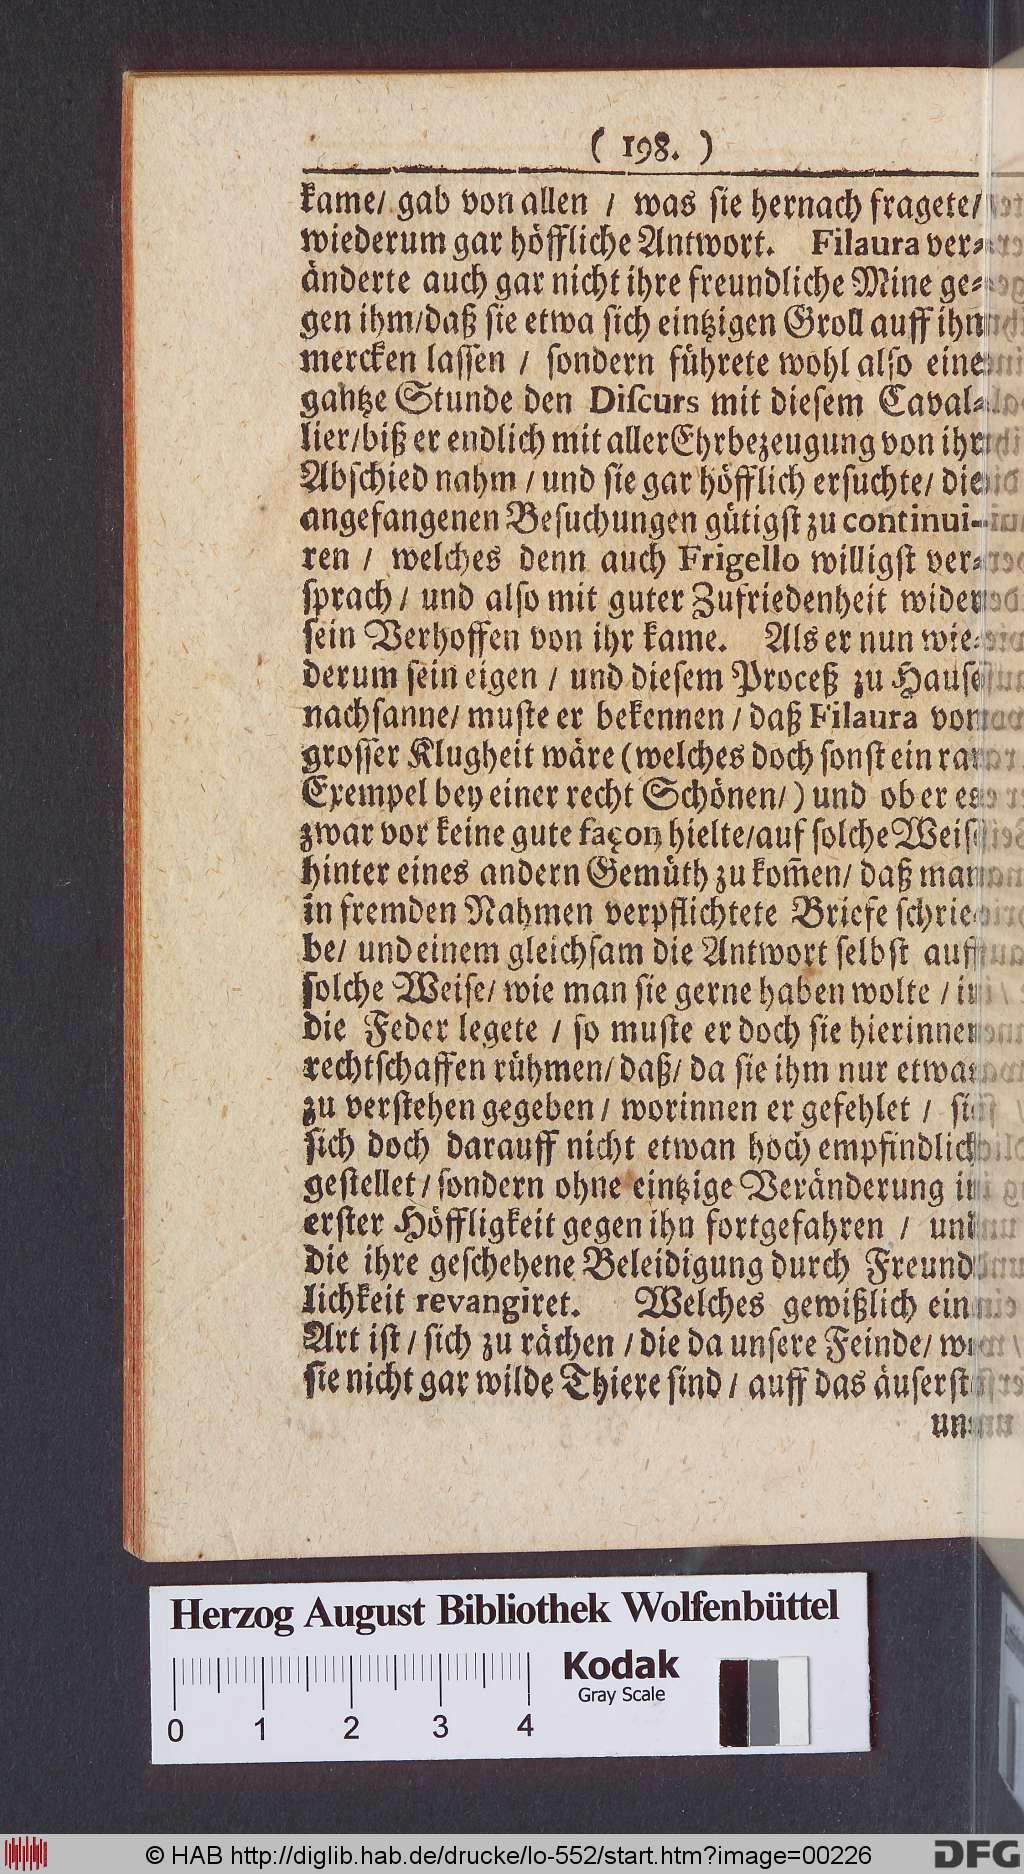 ( 198. )
kame/ gab von allen / was sie hernach fragete/
wiederum gar höffliche Antwort. Filaura ver-
änderte auch gar nicht ihre freundliche Mine ge-
gen ihm/daß sie etwa sich eintzigen Groll auff ihn
mercken lassen / sondern führete wohl also eine
gantze Stunde den Discurs mit diesem Caval-
lier/biß er endlich mit aller Ehrbezeugung von ihr
Abschied nahm / und sie gar höfflich ersuchte/ die
angefangenen Besuchungen gütigst zu continui-
ren / welches denn auch Frigello willigst ver-
sprach / und also mit guter Zufriedenheit wider
sein Verhoffen von ihr kame. Als er nun wie-
derum sein eigen / und diesem Proceß zu Hause
nachsanne/ muste er bekennen / daß Filaura von
grosser Klugheit wäre (welches doch sonst ein rar
Exempel bey einer recht Schönen/) und ob er es
zwar vor keine gute façon hielte/auf solche Weise
hinter eines andern Gemüth zu kom̃en/ daß man
in fremden Nahmen verpflichtete Briefe schrie-
be/ und einem gleichsam die Antwort selbst auff
solche Weise/ wie man sie gerne haben wolte / in
die Feder legete / so muste er doch sie hierinnen
rechtschaffen rühmen/ daß/ da sie ihm nur etwas
zu verstehen gegeben / worinnen er gefehlet /
sich doch darauff nicht etwan hoch empfindlich
gestellet / sondern ohne eintzige Veränderung in
erster Höffligkeit gegen ihn fortgefahren / und
die ihre geschehene Beleidigung durch Freund-
lichkeit revangiret. Welches gewißlich ein
Art ist / sich zu rächen / die da unsere Feinde/
sie nicht gar wilde Thiere sind / auff das äuserst
un-
Herzog August Bibliothek Wolfenbüttel
Kodak
Gray Scale
0 1 2 3 4
© HAB http://diglib.hab.de/drucke/lo-552/start.htm?image=00226
DFG